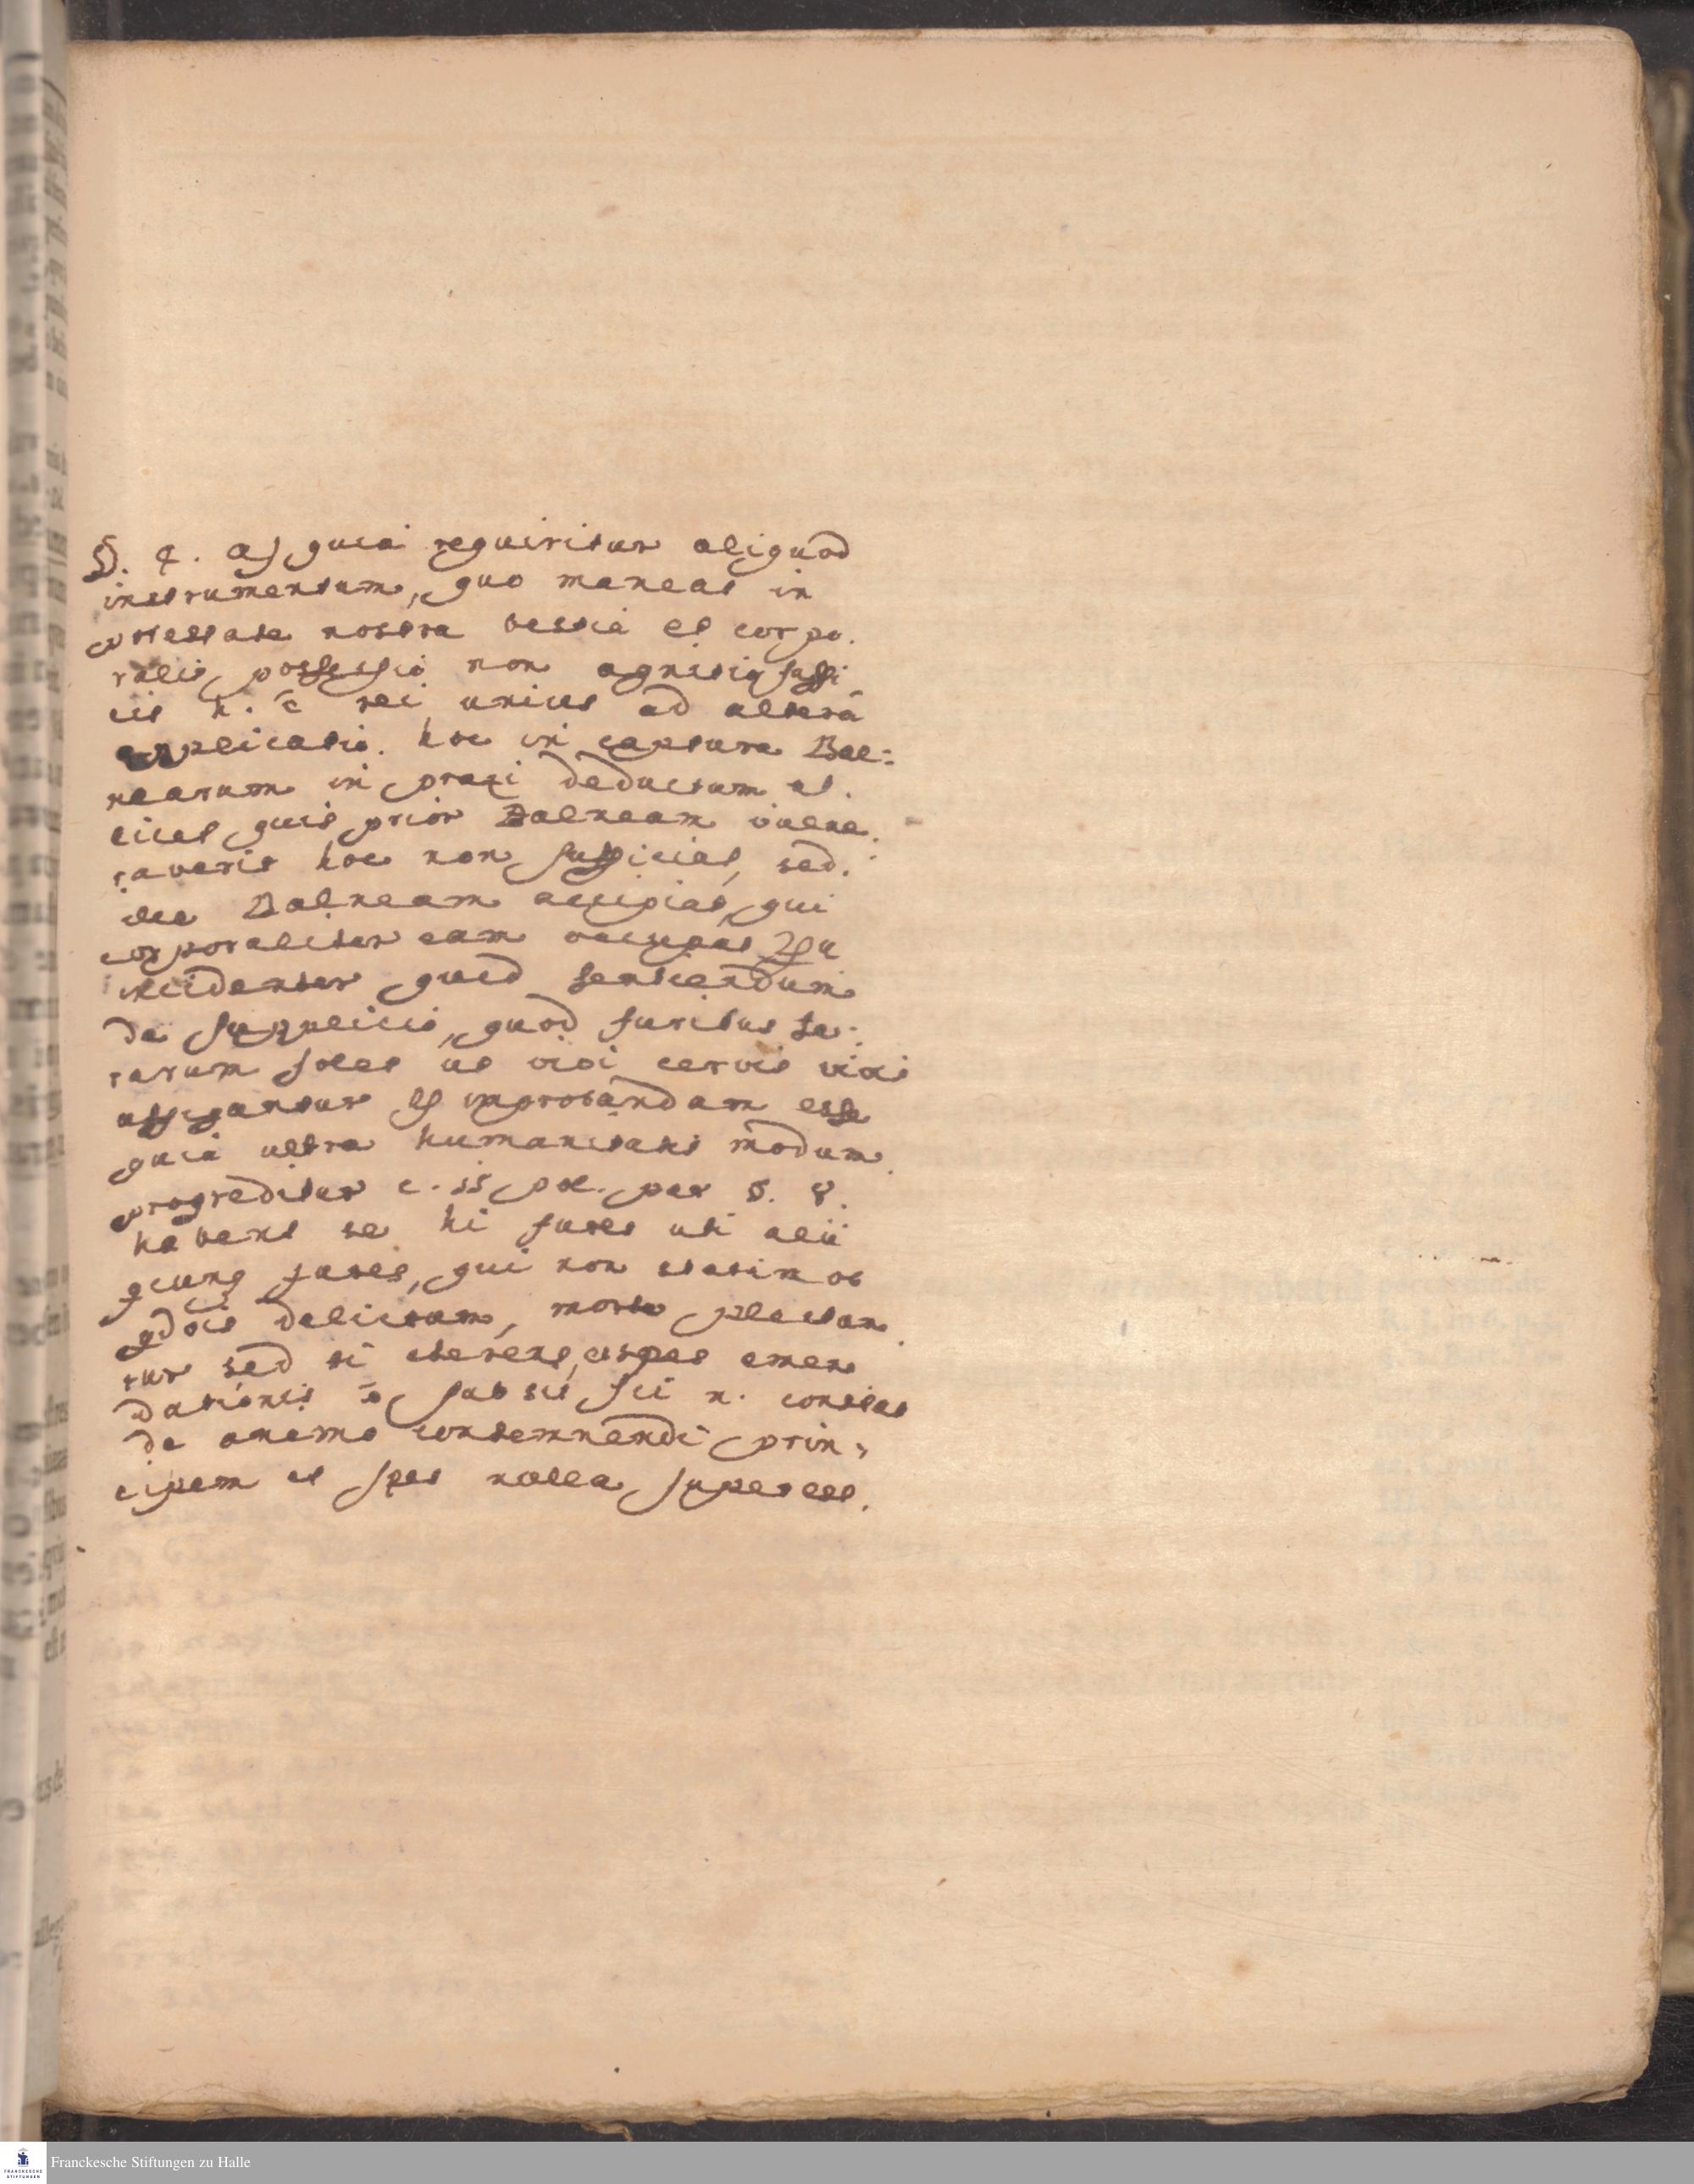 §. 4. as quia requiritur aliquod
instrumentum, quo maneat in
potestate nostra bestia et corpo.
ralis possessio non agnitio suffi
cit h. ē rei unius ad alterā
applicatio. hoc in captura Bal:
nearum in praxi deductum et.
licet quis prior Balneam vulne.
raverit hoc non sufficiat, sed.
ille Balneam accipiat, qui
corporaliter eam occupat
incidenter quid sentiendum
de supplicio, quod furibus fe.
rarum solet ut vivi cervis vivis
affigantur et improbandam esse
quia ultra humanitatis modum.
progreditur c. 55 poe. per
habent se hi fures uti alii
fures, qui non statim ob
delictum, morte plectan
tur sed si iterent, et spes emen
dationis subsit n. constat
de animo contemnendi prin,
cipem et spes nulla superest.
Franckesche Stiftungen zu Halle